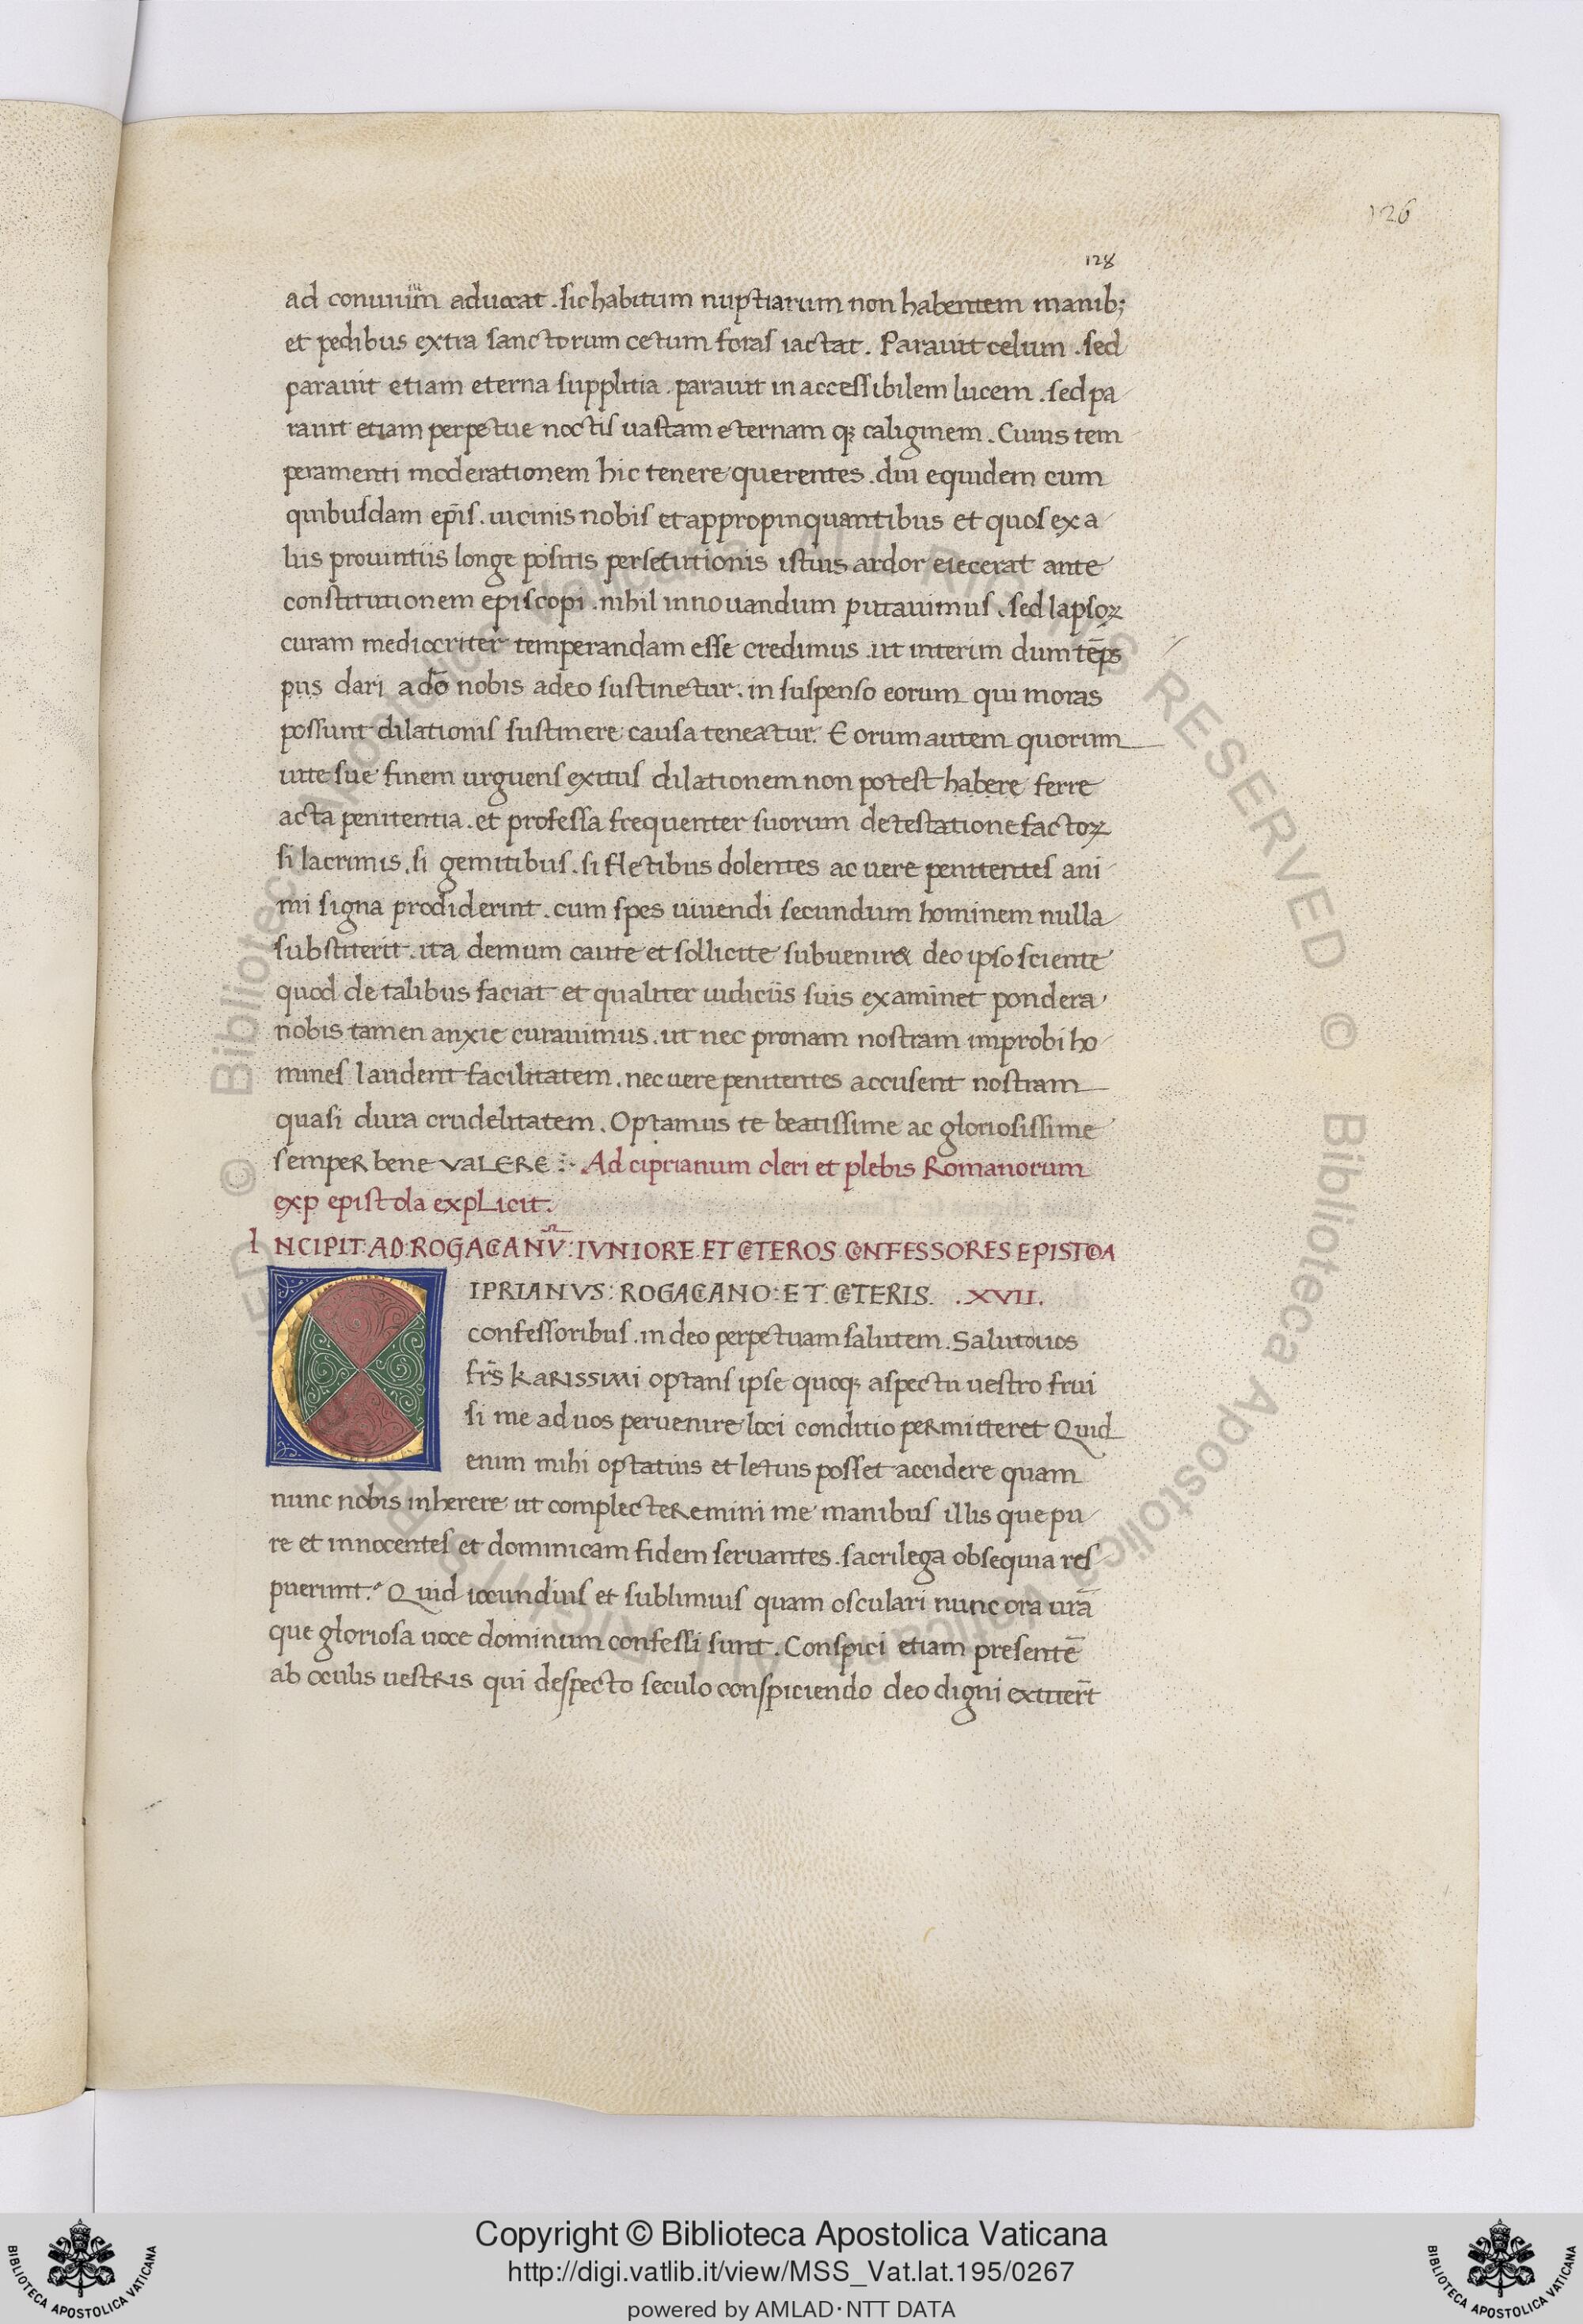 126
128
ad conuiuium aduocat . sic habitum nuptiarum non habentem manib;
et pedibus extra sanctorum cetum foras iactat . Parauit celum . sed
parauit etiam eterna supplitia . parauit in accessibilem lucem . sed pa
rauit etiam perpetue noctis uastam eternam qꝫ caliginem . Cuius tem
peramenti moderationem hic tenere querentes . diu equidem cum
quibusdam ep̄is . uicinis nobis et appropinquantibus et quos ex a
liis prouintiis longe positis persecutionis istius ardor eiecerat ante
constitutionem episcopi . nihil innouandum putauimus . sed lapsoꝝ
curam mediocriter temperandam esse credimus . ut interim dum tēps
pus dari a dō nobis adeo sustinetur . in suspenso eorum qui moras
possunt dilationis sustinere causa teneatur. Eorum autem quorum
uite sue finem urguens exitus dilationem non potest habere ferre
acta penitentia . et professa frequenter suorum detestatione factoꝝ
si lacrimis . si gemitibus . si fletibus dolentes ac uere penitentes ani
mi signa prodiderint . cum spes uiuendi secundum hominem nulla
substiterit . ita demum caute et sollicite subuenir& deo ipso sciente
quod de talibus faciat et qualiter iudiciis suis examinet pondera
nobis tamen anxie curauimus . ut nec pronam nostram improbi ho
mines laudent facilitatem . nec uere penitentes accusent nostram
quasi dura crudelitatem . Optamus te beatissime ac gloriosissime
semper bene VALERE :- Ad ciprianum cleri et plebis Romanorum
exp epistola expLicit .
INCIPIT: AD: ROGACIANV̄: IVNIORE ET CETEROS CONFESSORES EPISTOLA
CIPRIANVS: ROGACIANO: ET: CETERIS. .XVII.
confessoribus . in deo perpetuam salutem . Saluto uos
fr̄s kARISSIMI optans ipse quoqꝫ aspectu uestro frui
si me ad uos peruenire loci conditio permitteret Quid
enim mihi optatius et letius posset accidere quam
nunc nobis inherere ut complecteremini me manibus illis que pu
re et innocentes et dominicam fidem seruantes . sacrilega obsequia res
puerunt. Quid iocundius et sublimius quam osculari nunc ora ur̄a
que gloriosa uoce dominum confessi sunt . Conspici etiam presentē
ab oculis uestris qui despecto seculo conspiciendo deo digni extiter̄t
© Biblioteca Apostolica Vaticana ALL RIGHTS RESERVED © Biblioteca Apostolica Vaticana ALL RIGHTS RESERVED
Copyright © Biblioteca Apostolica Vaticana
http://digi.vatlib.it/view/MSS_Vat.lat.195/0267
powered by AMLAD·NTT DATA
BIBLIOTECA APOSTOLICA VATICANA
BIBLIOTECA APOSTOLICA VATICANA